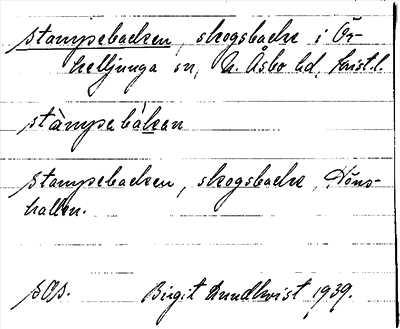 stampebacken, skogsbacke i Ör-
kelljunga sn, N. Åsbo hd, Krist.l.
stàmpebàkan
stampebacken, skogsbacke, Höns-
hallen.
SOS. Birgit Lundkvist 1939.